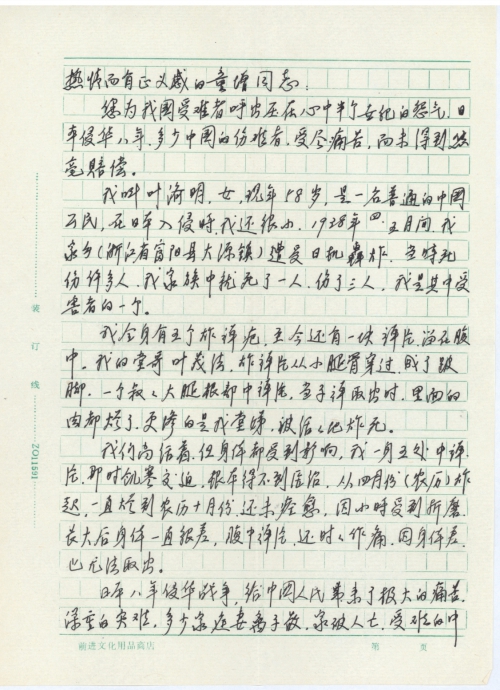 热情而有正义感的童增同志：
您为我国受难者呼出压在心中半个世纪的怨气，日
军侵华八年，多少中国的伤难者，受尽痛苦，而未得到
毫赔偿。
我叫叶渝明，女，现年58岁，是一名普通的中国
公民，在日军入侵时，我还很小，1938年四、五月间，我
家乡（浙江省富阳县大源镇）遭受日机轰炸，当时死
伤许多人，我家族中就死了一人，伤了三人，我是其中受
害者的一个。
我全身有五个炸弹疤，至今还有一块弹片留在腹
中。我的堂哥叶茂法，炸弹片从小腿骨穿过，成了跛
脚，一个叔叔大腿根部中弹片，当子弹取出时，里面的
肉都烂了，更惨的是我堂姊，被活活地炸死。
我们尚活着，但身体都受到影响，我一身五处中弹
片，那时饥寒交迫，根本得不到医治，从四月份（农历）炸
起，一直烂到农历十月份，还未痊愈，因小时受到折磨，
长大后身体一直很差，腹中弹片，还时时作痛，因身体差，
也无法取出。
日军八年侵华战争，给中国人民带来了极大的痛苦，
深重的灾难，多少家庭妻离子散，家破人亡，受难的中
装订线
2011591
前进文化用品商店
第 页